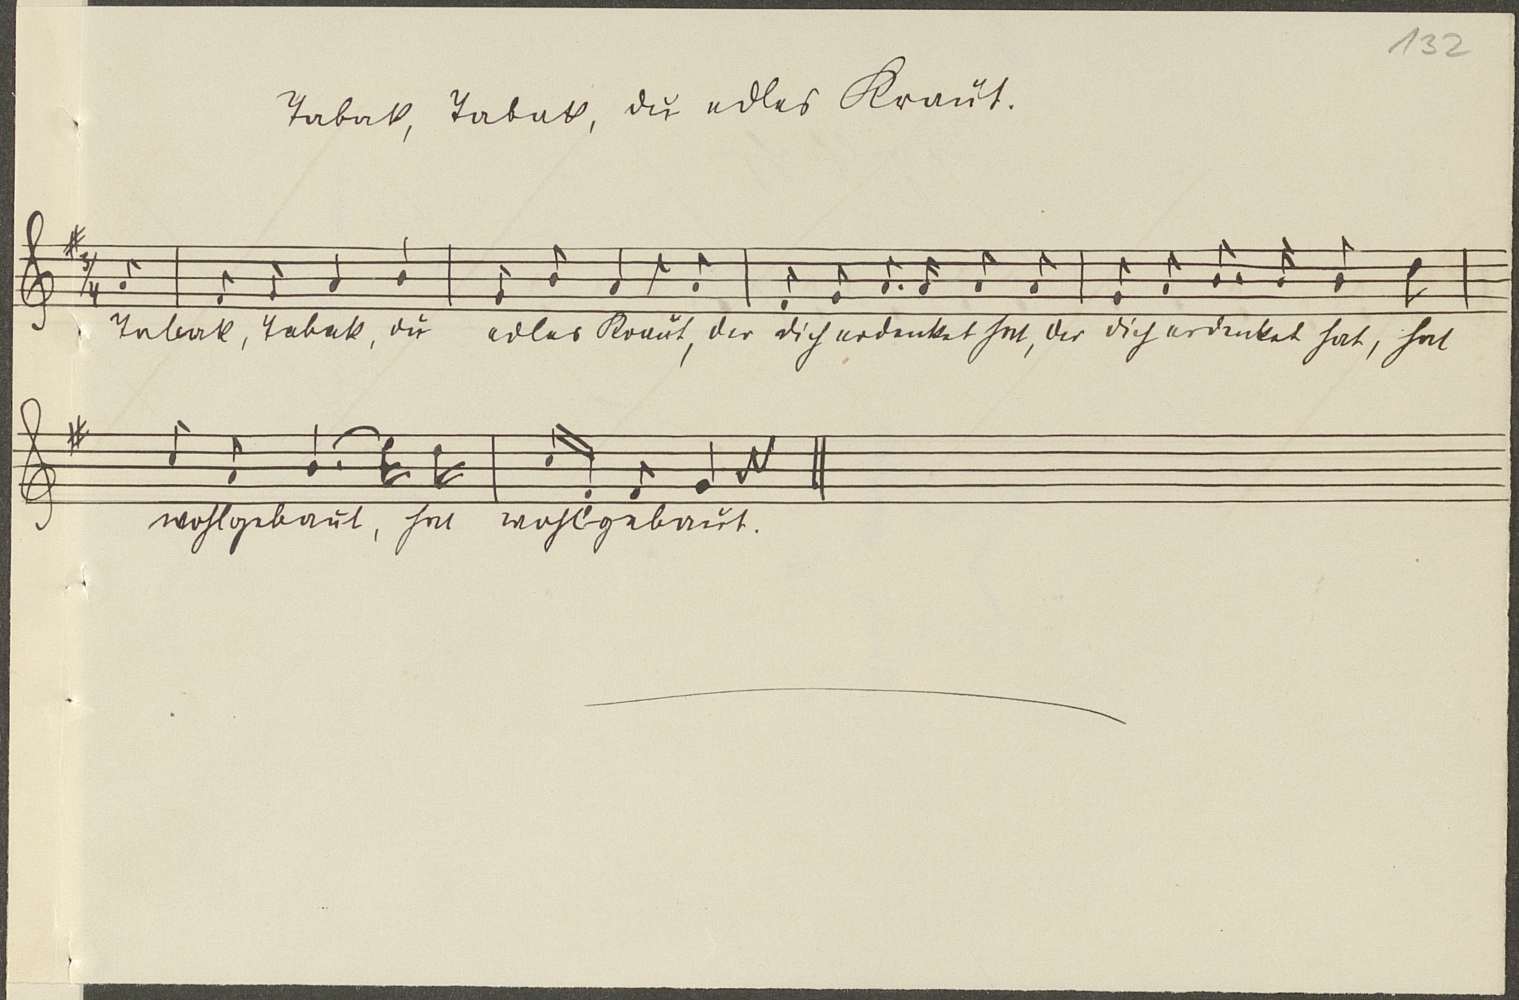 132
Tabak, Tabak, du edles Kraut.
3/4
Tabak, Tabak, du edles Kraut, der dich erdenket hat, der dich erdenket hat, hat
wohlgebaut, hat wohlgebaut.